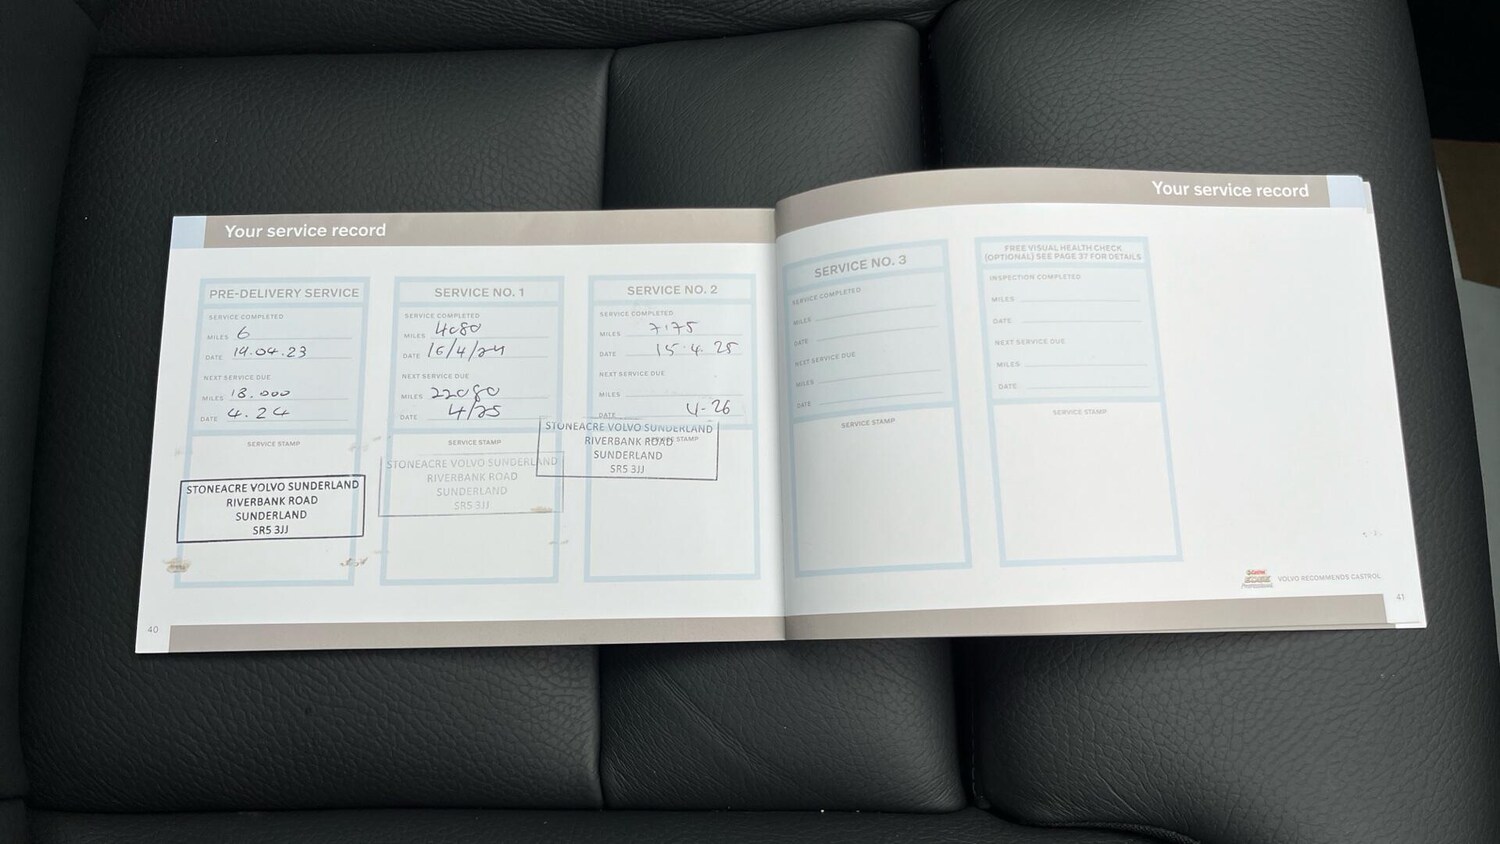 Your service record
PRE-DELIVERY SERVICE
SERVICE COMPLETED
MILES 6
DATE 19.04.23
NEXT SERVICE DUE
MILES 18.000
DATE 4.24
SERVICE STAMP
STONEACRE VOLVO SUNDERLAND
RIVERBANK ROAD
SUNDERLAND
SR5 3JJ
SERVICE NO. 1
SERVICE COMPLETED
MILES 4080
DATE 16/4/24
NEXT SERVICE DUE
MILES 22080
DATE 4/25
SERVICE STAMP
STONEACRE VOLVO SUNDERLAND
RIVERBANK ROAD
SUNDERLAND
SR5 3JJ
SERVICE NO. 2
SERVICE COMPLETED
MILES 7175
DATE 15.4.25
NEXT SERVICE DUE
MILES
DATE 4-26
SERVICE STAMP
STONEACRE VOLVO SUNDERLAND
RIVERBANK ROAD
SUNDERLAND
SR5 3JJ
40
Your service record
SERVICE NO. 3
SERVICE COMPLETED
MILES
DATE
NEXT SERVICE DUE
MILES
DATE
SERVICE STAMP
FREE VISUAL HEALTH CHECK
(OPTIONAL) SEE PAGE 37 FOR DETAILS
INSPECTION COMPLETED
MILES
DATE
NEXT SERVICE DUE
MILES
DATE
SERVICE STAMP
Castrol
EDGE
Professional
VOLVO RECOMMENDS CASTROL
41